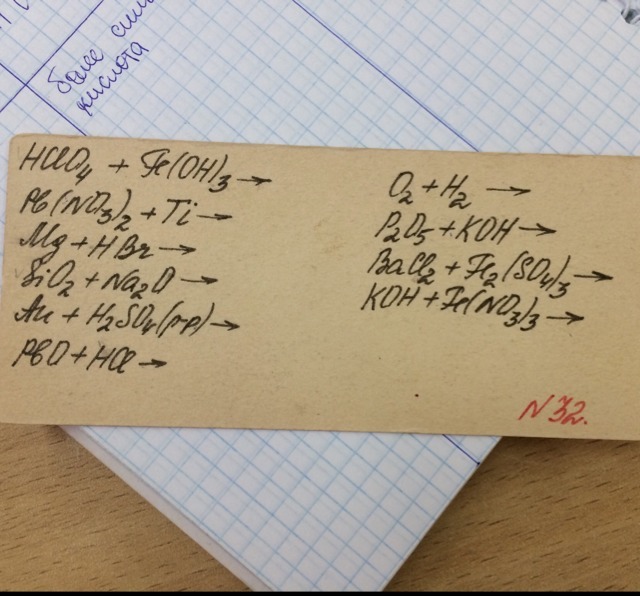 более силь
кислота
HClO₄ + Fe(OH)₃ →
Pb(NO₃)₂ + Ti →
Mg + HBr →
SiO₂ + Na₂O →
Au + H₂SO₄(р-р) →
PbO + HCl →
O₂ + H₂ →
P₂O₅ + KOH →
BaCl₂ + Fe₂(SO₄)₃ →
KOH + Fe(NO₃)₃ →
N 32.